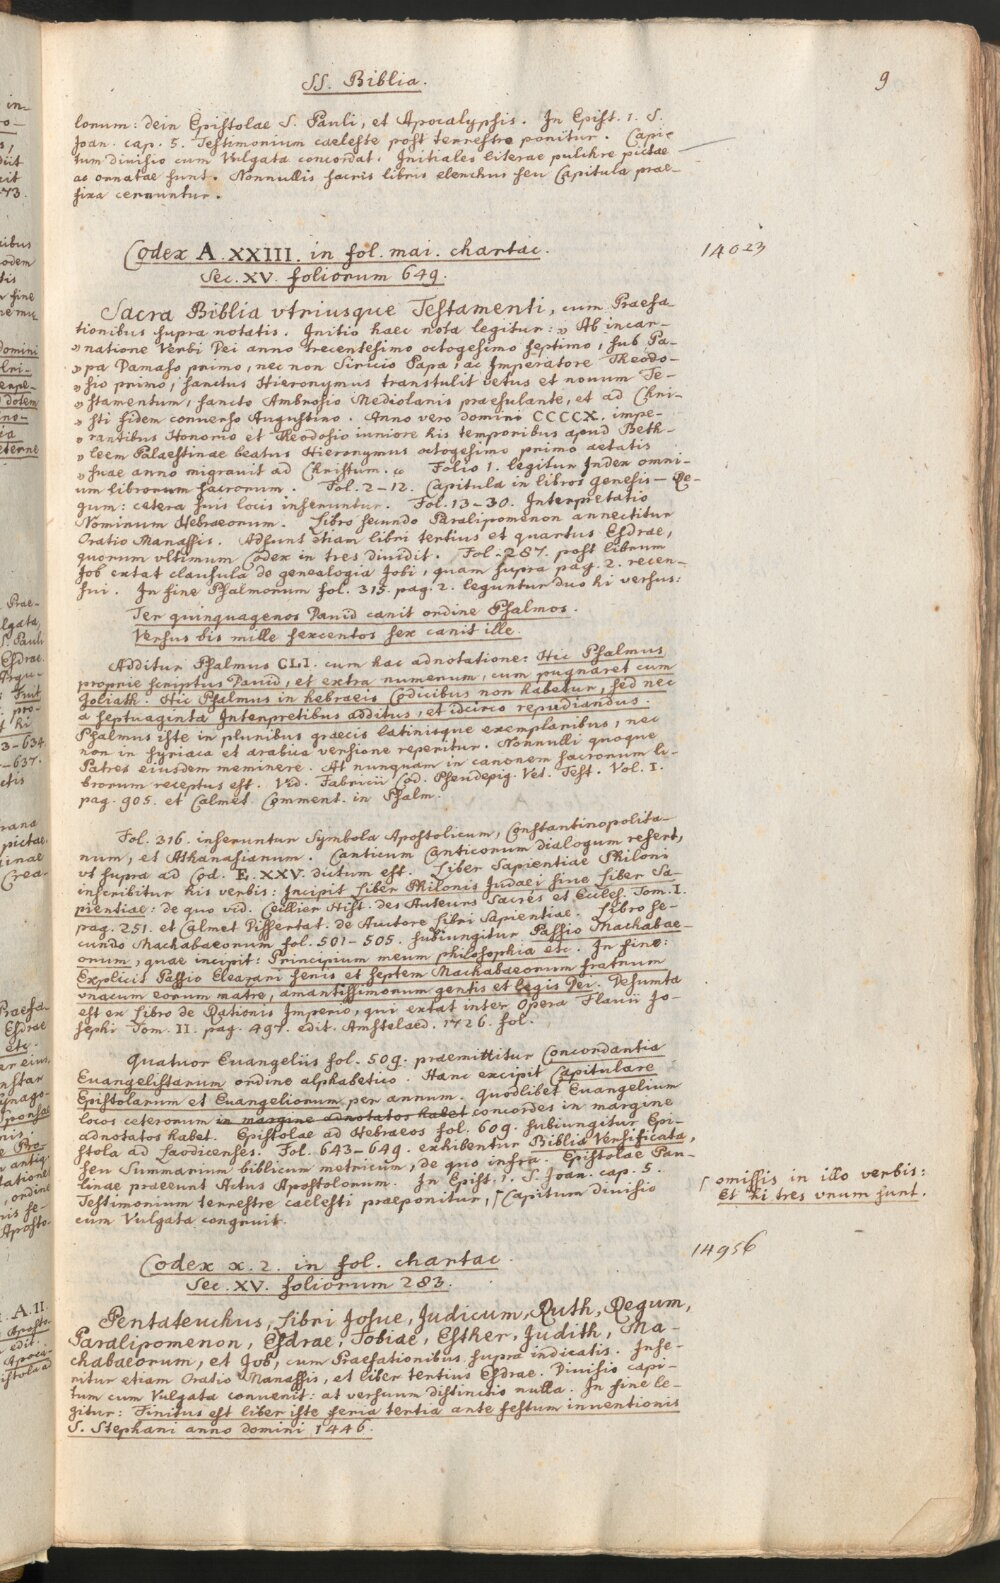 SS. Biblia.
9
lorum: dein Epistolae S. Pauli, et Apocalypsis. In Epist. 1. S.
Joan. cap. 5. Testimonium caeleste post terrestre ponitur. Capi-
tum divisio cum Vulgata concordat. Initiales literae pulchre pictae
ac ornatae sunt. Nonnullis sacris libris elenchus seu Capitula prae-
fixa cernuntur.
Codex A. XXIII. in fol. mai. chartac.
14023
Sec. XV. foliorum 649.
Sacra Biblia vtriusque Testamenti, cum Praefa-
tionibus supra notatis. Initio haec nota legitur: „ Ab incar-
„ natione Verbi Dei anno trecentesimo octogesimo septimo, sub Pa-
„ pa Damaso primo, nec non Siricio Papa, ac Imperatore Theodo-
„ sio primo, sanctus Hieronymus transtulit vetus et nouum Te-
„ stamentum, sancto Ambrosio Mediolanis praesulante, et ad Chri-
„ sti fidem conuerso Augustino. Anno vero domini CCCCX. impe-
„ rantibus Honorio et Theodosio iuniore his temporibus apud Beth-
„ leem Palaestinae beatus Hieronymus octogesimo primo aetatis
„ suae anno migrauit ad Christum. „ Folio 1. legitur Index omni-
um librorum sacrorum. Fol. 2-12. Capitula in libros genesis - Re-
gum: cetera suis locis inseruntur. Fol. 13-30. Interpretatio
Nominum Hebraeorum. Libro secundo Paralipomenon annectitur
Oratio Manassis. Adsunt etiam libri tertius et quartus Esdrae,
quorum vltimum Codex in tres diuidit. Fol. 287. post librum
Job extat clausula de genealogia Jobi, quam supra pag. 2. recen-
sui. In fine Psalmorum fol. 315. pag. 2. leguntur duo hi versus:
Ter quinquagenos Dauid canit ordine Psalmos.
Versus bis mille sexcentos sex canit ille.
Additur Psalmus CLI. cum hac adnotatione: Hic Psalmus
proprie scriptus Dauid, et extra numerum, cum pugnaret cum
Goliath. Hic Psalmus in hebraeis Codicibus non habetur, sed nec
a septuaginta Interpretibus additus, et idcirco repudiandus.
Psalmus iste in pluribus graecis latinisque exemplaribus, nec
non in syriaca et arabica versione reperitur. Nonnulli quoque
Patres eiusdem meminere. At nunquam in canonem sacrorum li-
brorum receptus est. Vid. Fabricii Cod. Pseudepig. Vet. Test. Vol. I.
pag. 905. et Calmet Comment. in Psalm.
Fol. 316. inseruntur Symbola Apostolicum, Constantinopolita-
num, et Athanasianum. Canticum Canticorum dialogum refert,
vt supra ad Cod. E. XXV. dictum est. Liber Sapientiae Philoni
inscribitur his verbis: Incipit Liber Philonis Judaei siue Liber Sa-
pientiae: de quo vid. Ceillier Hist. des Auteurs Sacrés et Eccles. Tom. I.
pag. 251. et Calmet Dissertat. de Auctore Libri Sapientiae. Libro se-
cundo Machabaeorum fol. 501-505. subiungitur Passio Machabae-
orum, quae incipit: Principium meum philosophia etc. In fine:
Explicit Passio Eleazari senis et septem Machabaeorum fratrum
vnacum eorum matre, amantissimorum gentis et legis Dei. Desumta
est ex Libro de Rationis Imperio, qui extat inter Opera Flauii Jo-
sephi Tom. II. pag. 497. edit. Amstelaed. 1726. fol.
Quatuor Euangeliis fol. 509. praemittitur Concordantia
Euangelistarum ordine alphabetico. Hanc excipit Capitulare
Epistolarum et Euangeliorum per annum. Quodlibet Euangelium
locos ceterorum in margine adnotatos habet concordes in margine
adnotatos habet. Epistolae ad Hebraeos fol. 609. subiungitur Epi-
stola ad Laodicenses. Fol. 643-649. exhibentur Biblia Versificata,
seu Summarium biblicum metricum, de quo infra. Epistolae Pau-
linae praeeunt Actus Apostolorum. In Epist. 1. S. Joan. cap. 5.
Testimonium terrestre caelesti praeponitur, ⌈ Capitum diuisio
⌈ omissis in illo verbis:
et hi tres vnum sunt.
cum Vulgata congruit.
Codex x. 2. in fol. chartac.
14956
Sec. XV. foliorum 283.
Pentateuchus, Libri Josue, Judicum, Ruth, Regum,
Paralipomenon, Esdrae, Tobiae, Esther, Judith, Ma-
chabaeorum, et Job, cum Praefationibus supra indicatis. Inse-
ritur etiam Oratio Manassis, et liber tertius Esdrae. Diuisio capi-
tum cum Vulgata conuenit: at versuum distinctio nulla. In fine le-
gitur: Finitus est liber iste feria tertia ante festum inuentionis
S. Stephani anno domini 1446.